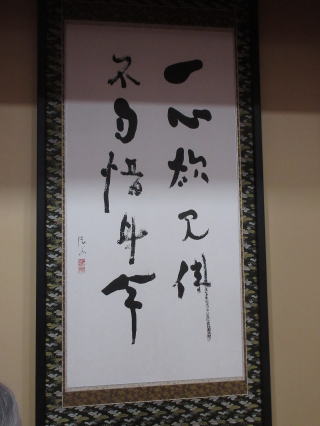 一心欲見佛
不自惜身命